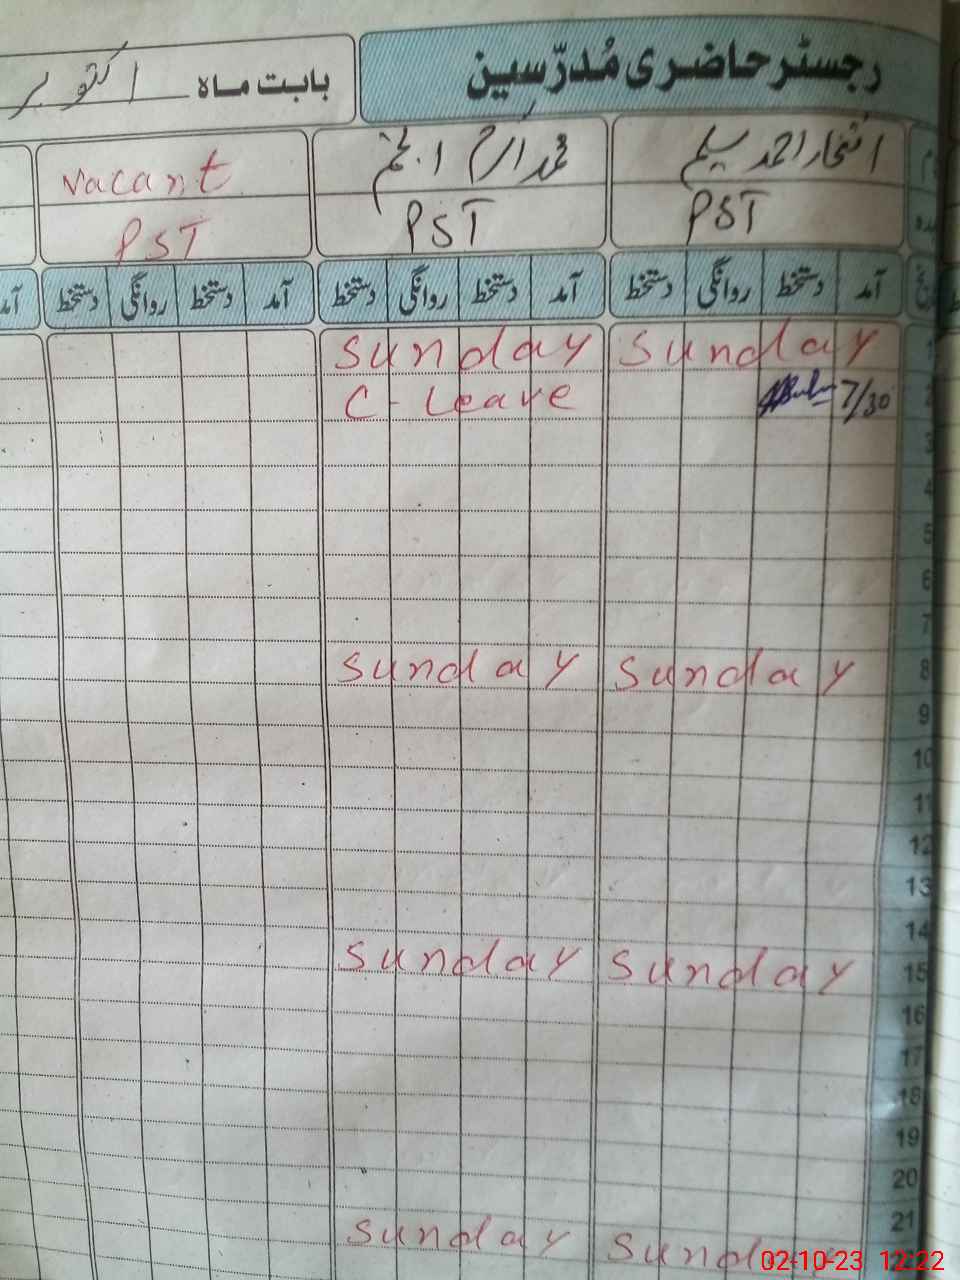 رجسٹر حاضری مُدرّسین
بابت ماہ اکتوبر
افتخار احمد سلیم
محمد
Vacant
PST
PST
PST
آمد دستخط روانگی دستخط آمد دستخط روانگی دستخط آمد دستخط روانگی دستخط آمد
1 Sunday Sunday
2 7/30 C-Leave
3
4
5
6
7
8 Sunday Sunday
9
10
11
12
13
14
15 Sunday Sunday
16
17
18
19
20
21
Sunday Sunday
02-10-23 12:22